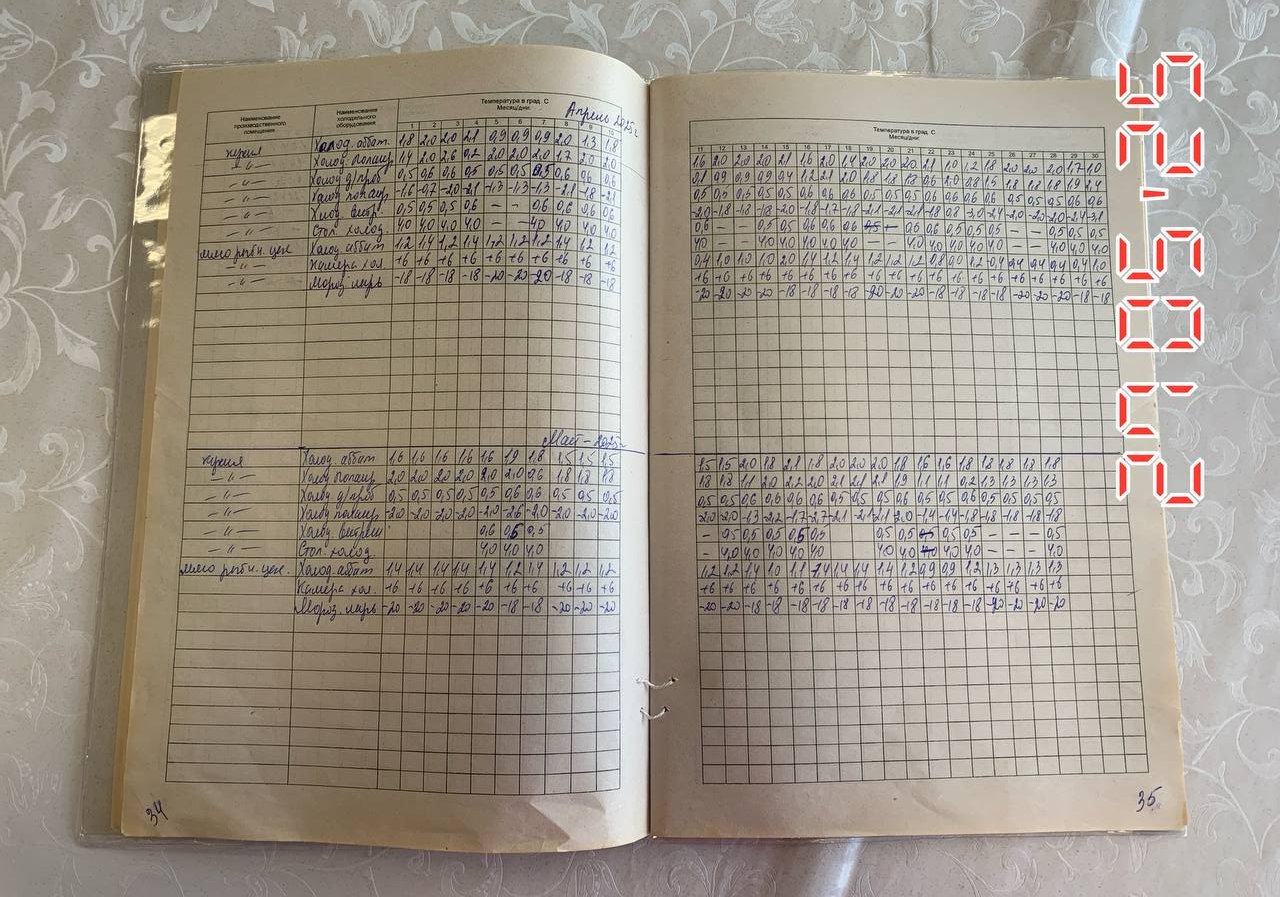 Наименование производственного помещения
Наименование холодильного оборудования
Температура в град. С
Месяц/дни:
Апрель 2025г
1 2 3 4 5 6 7 8 9 10
кухня Холод. аббат. 1,8 2,0 2,0 2,1 0,9 0,9 0,9 2,0 1,3 1,8
-"- 1,4 2,0 2,6 0,2 2,0 2,0 2,0 1,7 2,0 2,0
-"- Холод д/проб 0,5 0,6 0,6 0,5 0,5 0,5 0,5 0,6 0,6 0,6
-"- -1,6 -0,7 -2,0 -2,1 -1,3 -1,3 -1,3 -2,1 -1,8 -2,1
-"- Холод. витр. 0,5 0,5 0,5 0,6 – – 0,6 0,6 0,6 0,6
-"- Стол. холод. 4,0 4,0 4,0 4,0 – – 4,0 4,0 4,0 4,0
мясо рыбн. цех Холод аббат 1,2 1,4 1,2 1,4 1,2 1,2 1,2 1,4 1,2 1,2
-"- Камера хол. +6 +6 +6 +6 +6 +6 +6 +6 +6 +6
-"- Мороз. ларь -18 -18 -18 -18 -20 -20 -20 -18 -18 -18
Май – 2025г
кухня Холод. аббат 1,6 1,6 1,6 1,6 1,6 1,9 1,8 1,5 1,5 1,5
-"- 2,0 2,0 2,0 2,0 2,0 2,0 0,6 1,8 1,8 1,8
-"- Холод д/проб 0,5 0,5 0,5 0,5 0,5 0,6 0,6 0,5 0,5 0,5
-"- -2,0 -2,0 -2,0 -2,0 -2,0 -2,6 -2,0 -2,0 -2,0 -2,0
-"- Холод. витрин 0,6 0,5 0,5
-"- Стол. холод. 4,0 4,0 4,0
мясо рыбн. цех. Холод. аббат 1,4 1,4 1,4 1,4 1,4 1,2 1,4 1,2 1,2 1,2
Камера хол. +6 +6 +6 +6 +6 +6 +6 +6 +6 +6
Мороз. ларь -20 -20 -20 -20 -20 -18 -18 -20 -20 -20
34
Температура в град. С
Месяц/дни:
11 12 13 14 15 16 17 18 19 20 21 22 23 24 25 26 27 28 29 30
1,6 2,0 2,0 2,0 2,1 1,6 2,0 1,4 2,0 2,0 2,0 2,1 1,0 1,2 1,8 2,0 2,0 2,0 1,7 1,0
0,1 0,9 0,9 0,9 0,4 1,2 2,1 2,0 1,8 1,8 1,8 0,6 2,0 0,8 1,5 1,8 1,8 1,8 1,9 2,4
0,5 0,5 0,5 0,5 0,5 0,6 0,6 0,6 0,5 0,5 0,5 0,5 0,6 0,6 0,6 0,5 0,5 0,5 0,6 0,6
-2,0 -1,8 -1,8 -1,8 -2,0 -1,8 -1,7 -1,8 -2,1 -2,1 -2,1 -1,8 0,8 -3,0 -2,4 -2,0 -2,0 -2,0 -2,4 -3,1
0,6 – – 0,5 0,5 0,6 0,6 0,6 – 0,6 0,6 0,5 0,5 0,5 – – 0,5 0,5 0,5
4,0 – – 4,0 4,0 4,0 4,0 4,0 – – 4,0 4,0 4,0 4,0 4,0 – – 4,0 4,0 4,0
0,4 1,0 1,0 1,0 2,0 1,4 1,2 1,4 1,2 1,2 1,2 0,8 0,0 1,2 0,4 0,4 0,4 0,4 0,4 1,0
+6 +6 +6 +6 +6 +6 +6 +6 +6 +6 +6 +6 +6 +6 +6 +6 +6 +6 +6 +6
-20 -20 -20 -20 -18 -18 -18 -18 -20 -20 -20 -18 -18 -18 -18 -20 -20 -20 -18 -18
1,5 1,5 2,0 1,8 2,1 1,8 2,0 2,0 2,0 1,8 1,6 1,6 1,8 1,8 1,8 1,8 1,8
1,8 1,8 1,1 2,0 2,2 2,0 2,1 2,1 2,1 1,9 1,1 1,1 0,2 1,3 1,3 1,3 1,3
0,5 0,5 0,6 0,6 0,6 0,6 0,5 0,5 0,5 0,6 0,5 0,5 0,6 0,5 0,5 0,5 0,5
-2,0 -2,0 -1,3 -2,2 -1,7 -2,7 -2,1 -2,1 -2,1 -2,0 -1,4 -1,4 -1,8 -1,8 -1,8 -1,8 -1,8
– 0,5 0,5 0,5 0,5 0,5 0,5 0,5 0,5 0,5 – – – 0,5
– 4,0 4,0 4,0 4,0 4,0 4,0 4,0 4,0 4,0 4,0 – – – 4,0
1,2 1,2 1,4 1,0 1,1 1,4 1,4 1,4 1,4 1,2 0,9 0,9 1,2 1,3 1,3 1,3 1,3
+6 +6 +6 +6 +6 +6 +6 +6 +6 +6 +6 +6 +6 +6 +6 +6 +6
-20 -20 -18 -18 -18 -18 -18 -18 -18 -18 -18 -18 -18 -20 -20 -20 -20
35